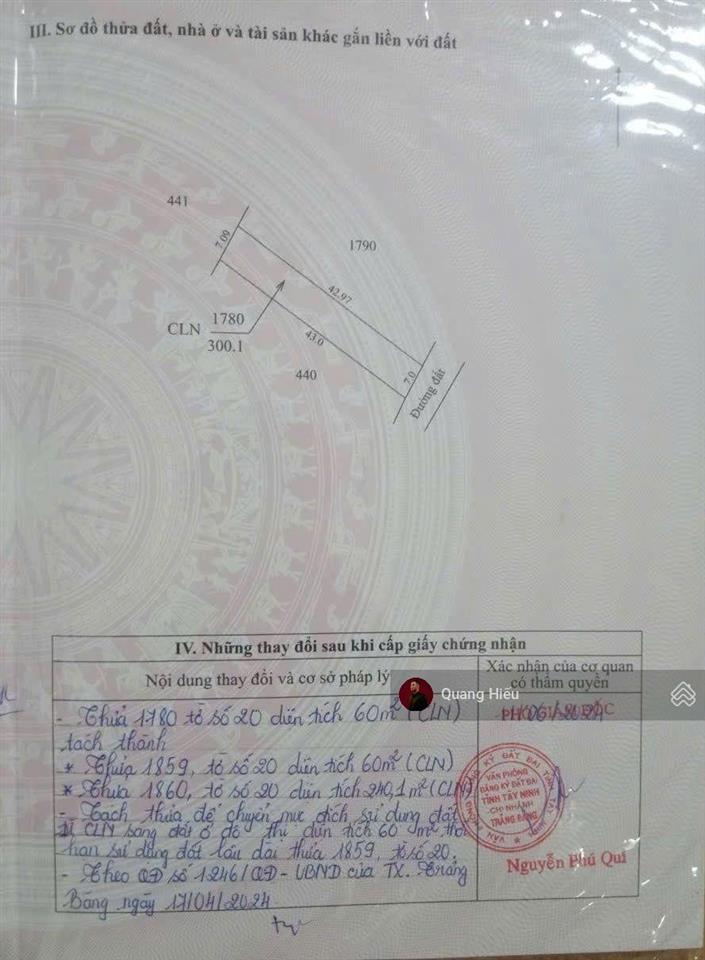 III. Sơ đồ thửa đất, nhà ở và tài sản khác gắn liền với đất
441
7.09
1790
42.97
CLN 1780
300.1
43.0
440
7.0
Đường đất
IV. Những thay đổi sau khi cấp giấy chứng nhận
Nội dung thay đổi và cơ sở pháp lý
Xác nhận của cơ quan
có thẩm quyền
Quang Hiếu
- Thửa 1780 tờ số 20 diện tích 60m² (CLN)
tách thành
* Thửa 1859, tờ số 20 diện tích 60m² (CLN)
* Thửa 1860, tờ số 20 diện tích 240,1m² (CLN)
- Tách thửa để chuyển mục đích sử dụng đất
từ CLN sang đất ở đô thị diện tích 60m² thời
hạn sử dụng đất lâu dài thửa 1859, tờ số 20.
- Theo QĐ số 1246/QĐ-UBND của TX. Trảng
Bàng ngày 17/04/2024
VĂN PHÒNG
ĐĂNG KÝ ĐẤT ĐAI
TỈNH TÂY NINH
CHI NHÁNH
TRẢNG BÀNG
Nguyễn Phú Quí